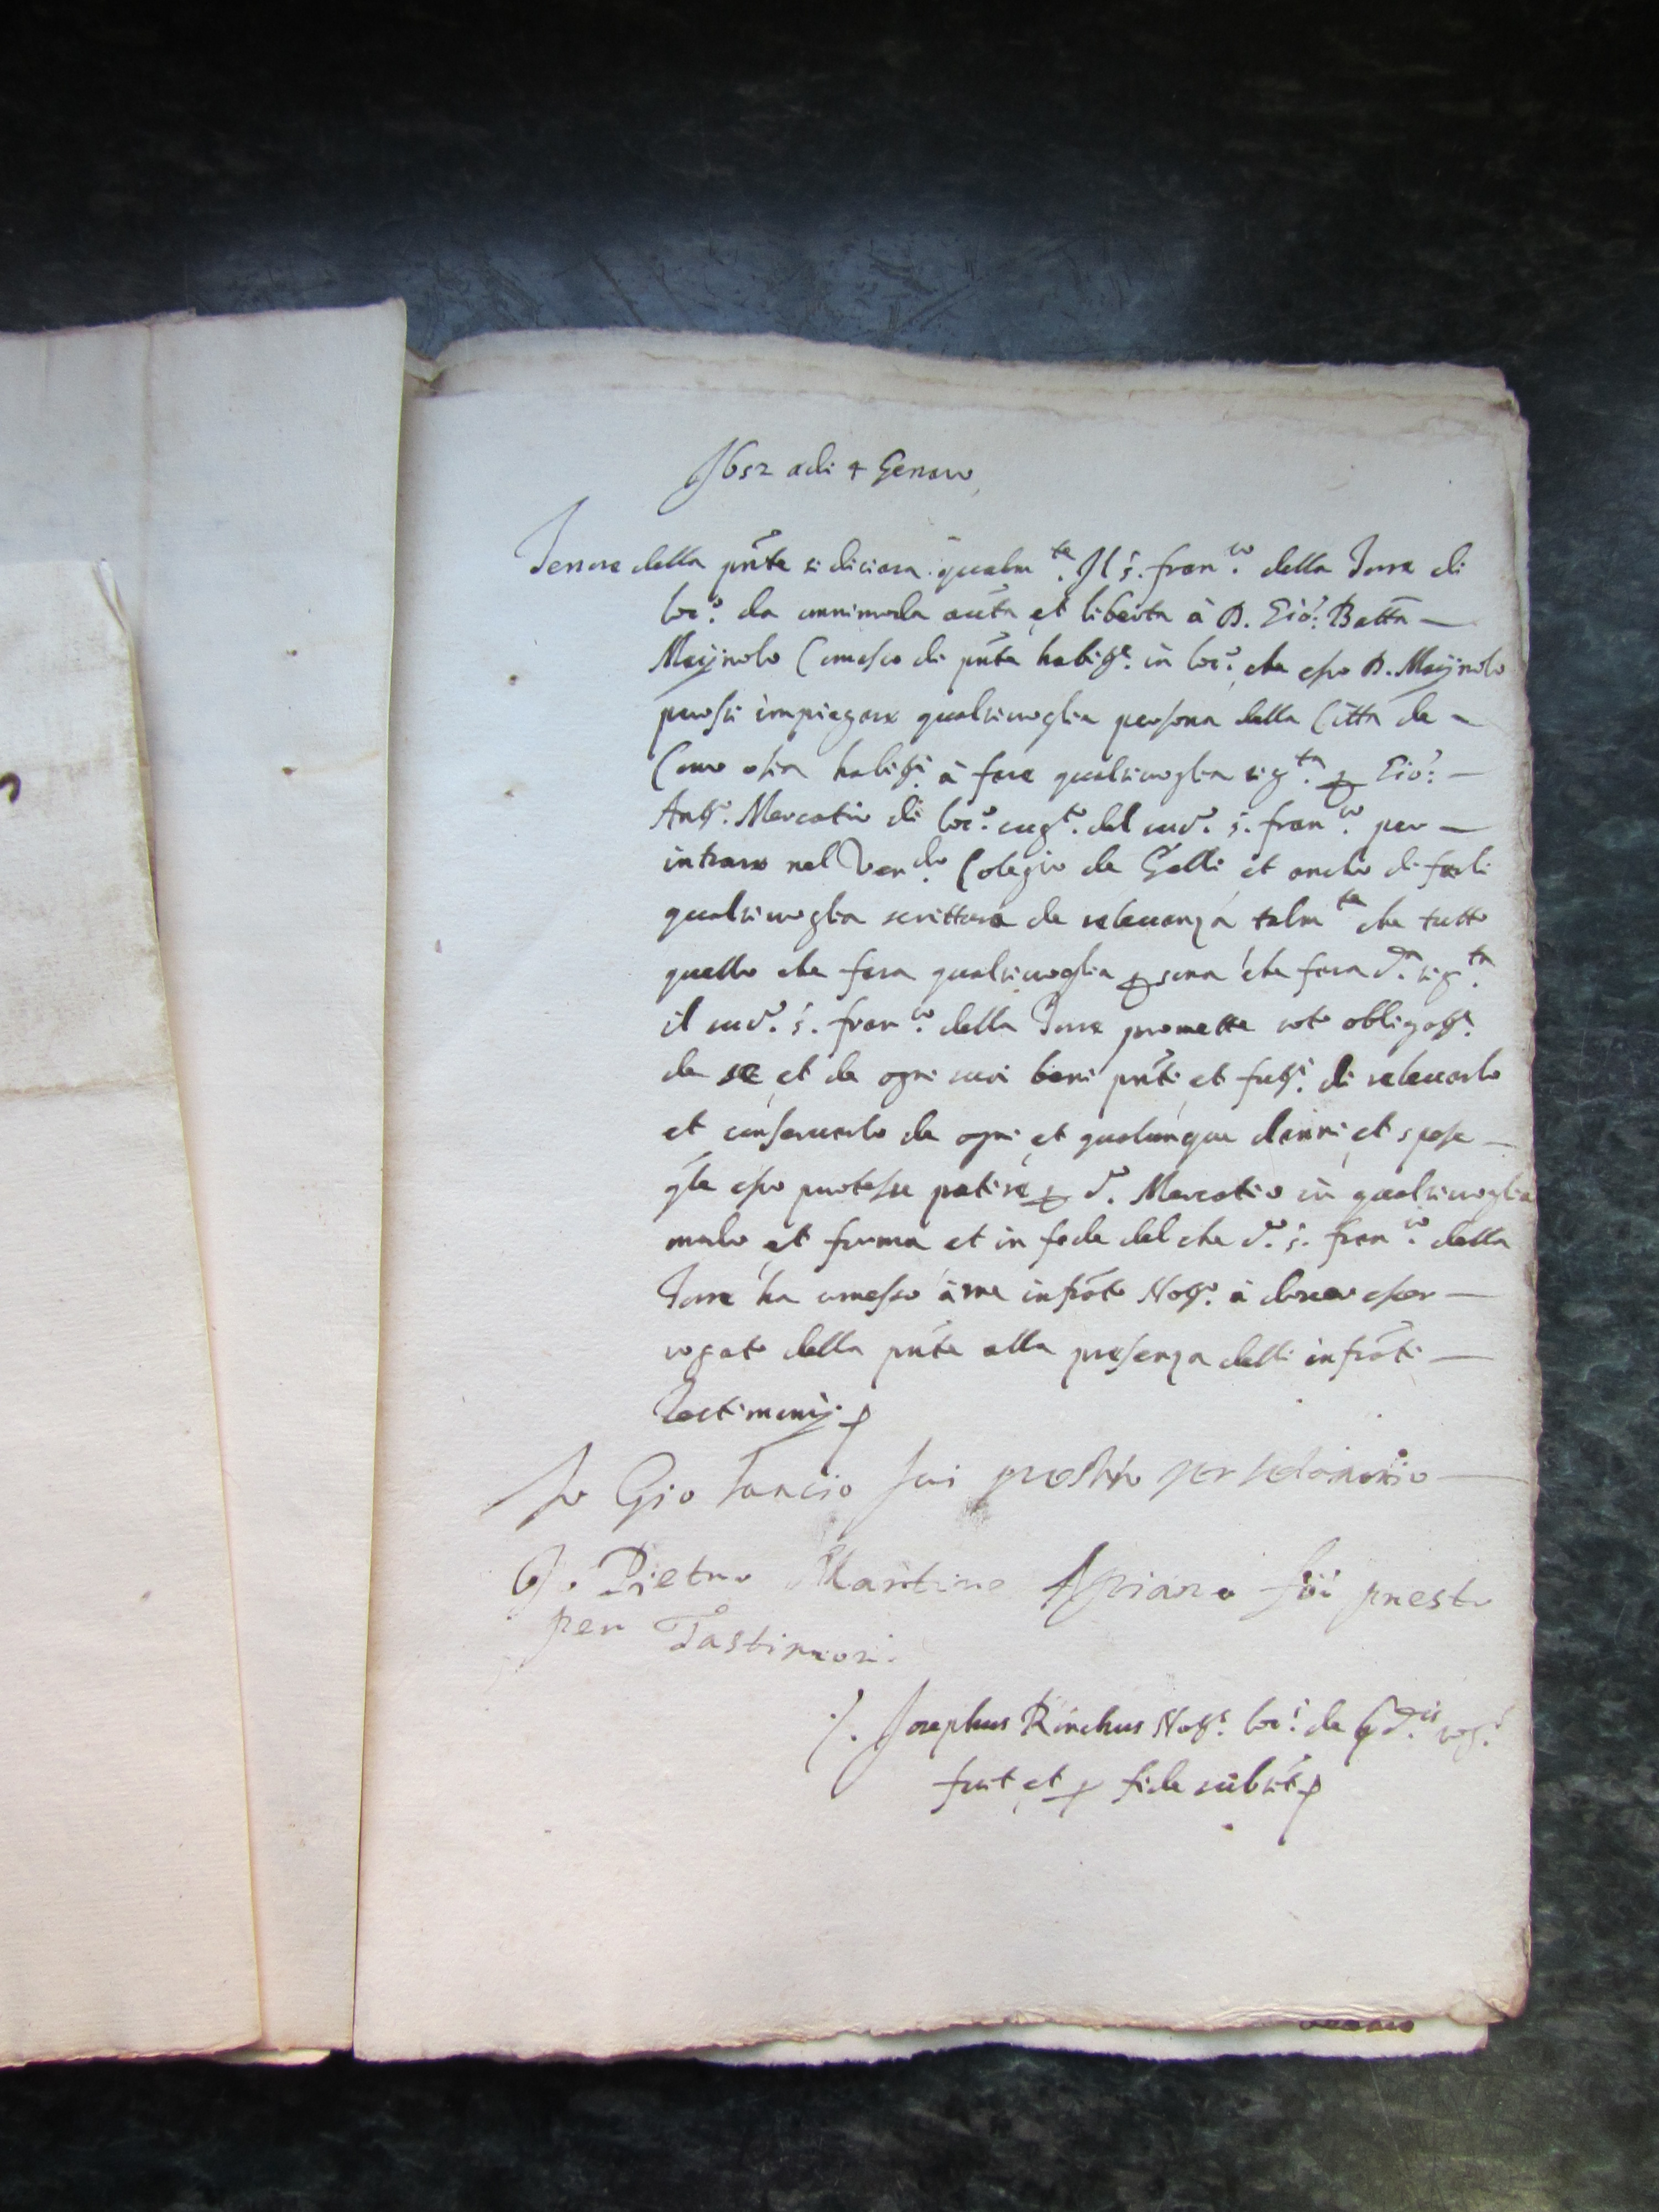 1652 adi 4 Genaro
Tenore della pñte si diciara qualm.te Il s. fran.co della Torre di
loc.o da omnimoda auta et liberta à D. Gio: Batta —
Maijnolo Comesco di pñte habit.e in loc.o che esso D. Maijnolo
possi impiegare qualsivoglia persona della Citta de —
Como osia habit.i à fare qualsivoglia sig.ta per Gio: —
Ant.o Mercatio di loc.o cug.to del sud.o s. fran.co per —
intrare nel Ven.do Colegio de Galli et ancho di farli
qualsivoglia scrittura de relevanza talm.te che tutto
quello che fara qualsivoglia persona che fara d.a sig.ta
il sud.o s. fran.co della Torre promette soto obligat.e
de se et de ogni suoi beni pñti et fut.i di relevarlo
et conservarlo de ogni et qualunque danni et spese —
q̃le esso puotesse patire per d.o Mercatio in qualsivoglia
modo et forma et in fede del che d.o s. fran.co della
Torre ha comesso à me infrōto Not.o à dover esser —
rogato della pñte alla presenza delli infrōti —
Testimonij
Io Gio fui presente per
Io Pietro Martire Apiano fui presete
per Tastimoni.
J. Josephus Rinchus Not.s loc.i de p.d.is rog.s
fuit et per fide subst